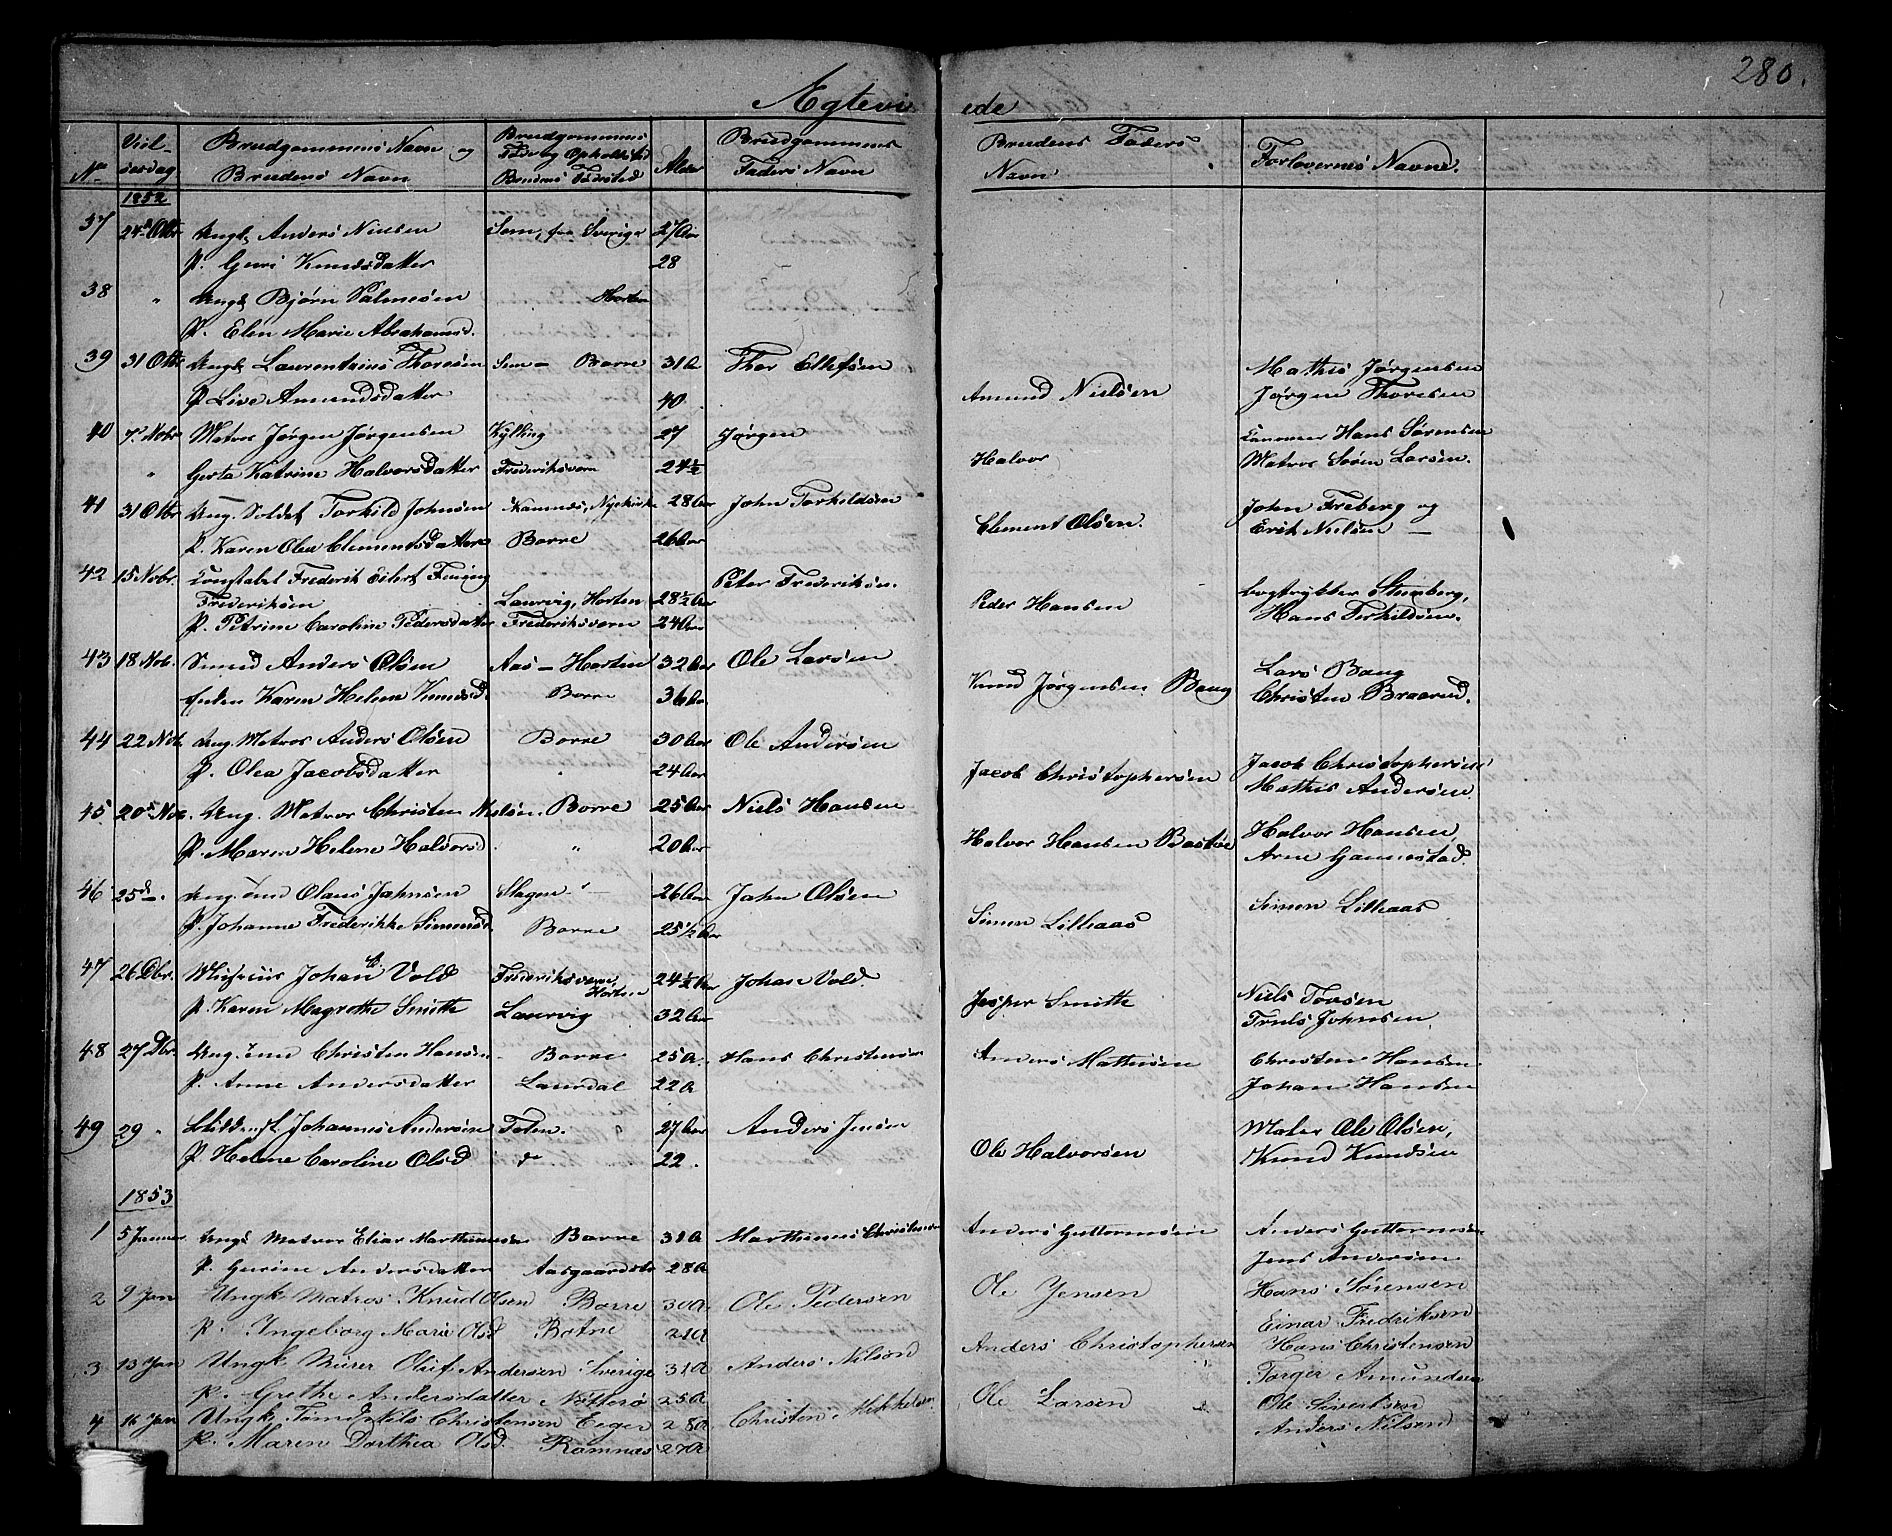 280.
Ægteviede
No
Viel-
sesdag
Brudgommens Navn og
Brudens Navn
Brudgommens
Fødested Opholdsted
Brudens Fødested
Alder
Brudgommens
Faders Navn
Brudens Faders
Navn
Forlovernes Navne.
1852
37 24d Otbr Ungk Anders Nielsen Sem, fra Sverige 27 Aar
P. Guri Knudsdatter 28
38 " Ungk Bjørn Salmesøn Horten
P. Elen Marie Abrahamsd.
39 31 Otbr Ungk Laurentzius Thoresøn Sem – Borre 31 A Thor Ellefsøn Mathis Jørgensen
P. Live Amundsdatter 40. Amund Nielsøn Jørgen Thoresen
40 7. Nobr Matros Jørgen Jørgensen Kylling 27 Jørgen Canoneer Hans Sørensen
" Gerta Katrine Halvorsdatter Frederiksvern 24½ Halvor Matros Søren Larsen.
41 31 Otbr Ung. Soldat Torkild Johnsøn Ramnæs, Nykirke 28 Aar John Torkildsøn John Freberg og
P. Karen Olea Clementsdatter Borre 26 Aar Clement Olsen. Erik Nielsen –
42 15 Nobr. Constabel Frederik Eilert Peter Frederiksøn. bogtrykker
Frederiksøn Laurvig, Horten 28½ Aar Peder Hansen Hans Terkildsøn.
P. Petrine Caroline Pedersdatter Frederiksvern 24 Aar
43 18 Nob. Smed Anders Olsen Aas – Horten 32 Aar Ole Larsøn Lars Bang
Enken Karen Helene Knudsd Borre 36 Aar. Knud Jørgensen Bang Christen Braarud.
44 22 Nob. Ung. Matros Anders Olsen Borre 30 Aar Ole Andersøn Jacob Christophersøn
P. Olea Jacobsdatter " 24 Aar Jacob Christophersøn Mathis Andersøn.
45. 20de Nov. Ung. Matros Christen Nielsøn. Borre 25 Aar Niels Hansen Halvor Hansen,
P. Maren Helene Halvorsd. " 20 Aar Halvor Hansen Bastøe Arne Gannestad.
46 25 d–. Ung. Olaus Jahnsøn Slagen 26 Aar John Olsøn Simen Lilleaas
P. Johanne Frederikke Simensd. Borre 25½ Aar Simen Lilleaas
47 26 Dbr. Musicus Johan Vold Frederiksvern, Horten 24½ Aar Johan Vold. Niels Torsen
P. Karen Magrethe Smitte Laurvig 32 Aar Jesper Smitte Truls Johnsen,
48 27 Dbr. Ung. Christen Hansen Borre 25 A. Hans Christensen Anders Mathisøn Christen Hansen
P. Anne Andersdatter Laurdal 22 A Johan Hansen
49 29 " Johannes Andersøn Toten. 27 Aar Anders Jensen Maler Ole Olsen,
P. Helene Caroline Olsd do 22. Ole Halvorsøn Knud Knudsøn
1853
1 5 Januar Ungk Matros Elias Marthinusen Borre 31 A Marthinus Christensen Anders Guttormsen Anders Guttormsen
P. Gurine Andersdatter Aasgaardstr 28 A Jens Andersøn
2 9 Jan Ungk Matros Knud Olsen Borre 30 A. Ole Pedersen Ole Jensen Hans Sørensen
P. Ingeborg Marie Olsd Botne 21 A Einar Fredriksen
3 13 Jan Ungk Oluf Andersen Sverige 31 A Anders Nilson Anders Christophersen Hans Christensen
P. Grethe Andersdatter Nøtterø 25 A Torger Amundsen
4 16 Jan Ungk Tømm. Nils Christensen Eeger 28 A Christen Mikkelsen Ole Larsen Ole Sivertsen
P. Maren Dorthea Olsd. Ramnæs 27 A Anders Nilsen